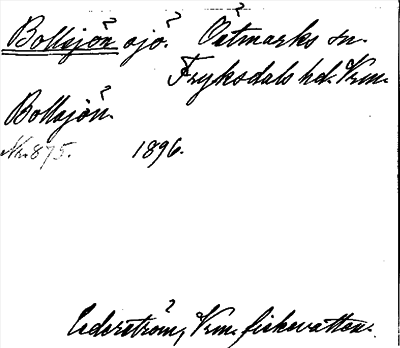 Bollsjön sjö. Östmarks sn.
Fryksdals hd. Vrm.
Bollsjön.
Nr. 875. 1896.
Cederström, Vrm. fiskevatten.